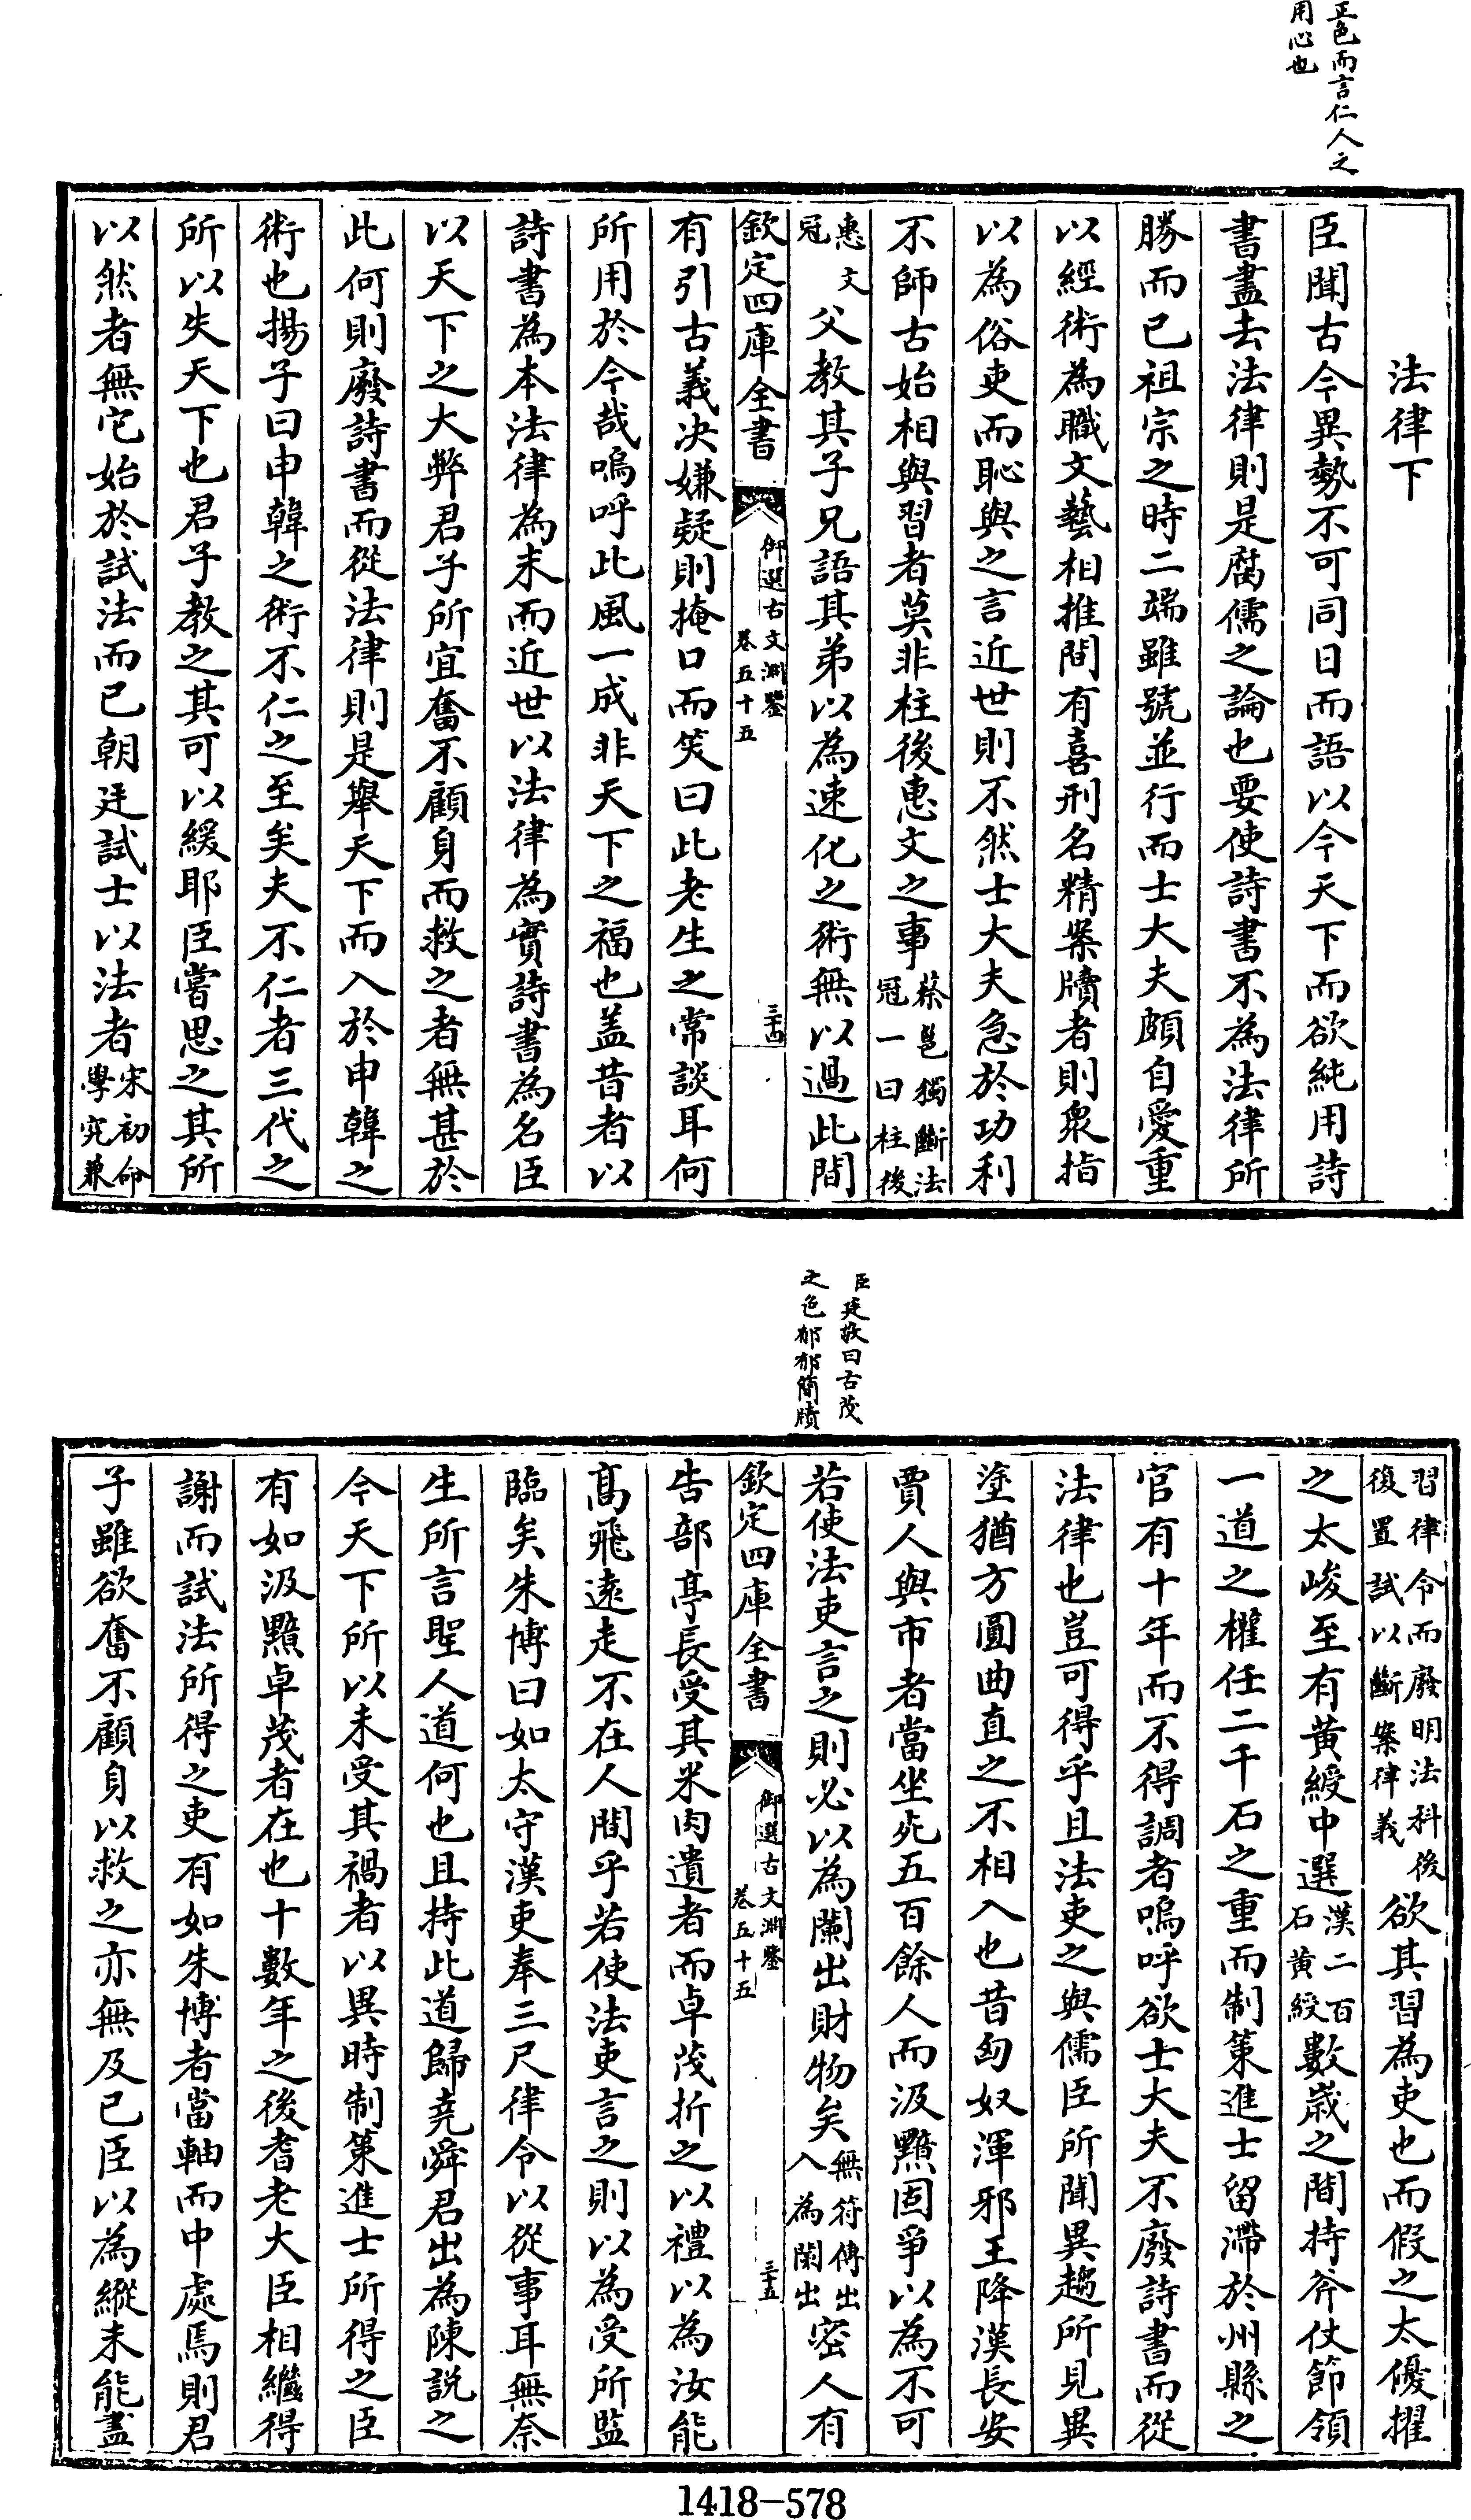 正色而言仁人之
用心也
法律下
臣聞古今異勢不可同日而語以今天下而欲純用詩
書盡去法律則是腐儒之論也要使詩書不為法律所
勝而已祖宗之時二端雖號並行而士大夫頗自愛重
以經術為職文藝相推間有喜刑名精案牘者則衆指
以為俗吏而恥與之言近世則不然士大夫急於功利
不師古始相與習者莫非柱後惠文之事蔡邕獨斷法冠一曰柱後
惠文冠父教其子兄語其弟以為速化之術無以過此間
欽定四庫全書
御選古文淵鑒
卷五十五
三十四
有引古義决嫌疑則掩口而笑曰此老生之常談耳何
所用於今哉嗚呼此風一成非天下之福也盖昔者以
詩書為本法律為末而近世以法律為實詩書為名臣
以天下之大弊君子所宜奮不顧身而救之者無甚於
此何則廢詩書而從法律則是舉天下而入於申韓之
術也揚子曰申韓之術不仁之至矣夫不仁者三代之
所以失天下也君子教之其可以緩耶臣嘗思之其所
以然者無它始於試法而已朝廷試士以法者宋初命學究兼
臣廷敬曰古茂
之色郁郁簡牘
習律令而廢明法科後復置試以斷案律義欲其習為吏也而假之太優擢
之太峻至有黄綬中選漢二百石黄綬數歲之間持斧仗節領
一道之權任二千石之重而制策進士留滯於州縣之
官有十年而不得調者嗚呼欲士大夫不廢詩書而從
法律也豈可得乎且法吏之與儒臣所聞異趨所見異
塗猶方圓曲直之不相入也昔匈奴渾邪王降漢長安
賈人與市者當坐死五百餘人而汲黯固爭以為不可
若使法吏言之則必以為闌出財物矣無符傳出入為闌出密人有
欽定四庫全書
御選古文淵鑒
卷五十五
三十五
告部亭長受其米肉遺者而卓茂折之以禮以為汝能
髙飛逺走不在人間乎若使法吏言之則以為受所監
臨矣朱博曰如太守漢吏奉三尺律令以從事耳無奈
生所言聖人道何也且持此道歸堯舜君出為陳説之
今天下所以未受其禍者以異時制策進士所得之臣
有如汲黯卓茂者在也十數年之後耆老大臣相繼得
謝而試法所得之吏有如朱博者當軸而中處焉則君
子雖欲奮不顧身以救之亦無及已臣以為縱未能盡
1418-578